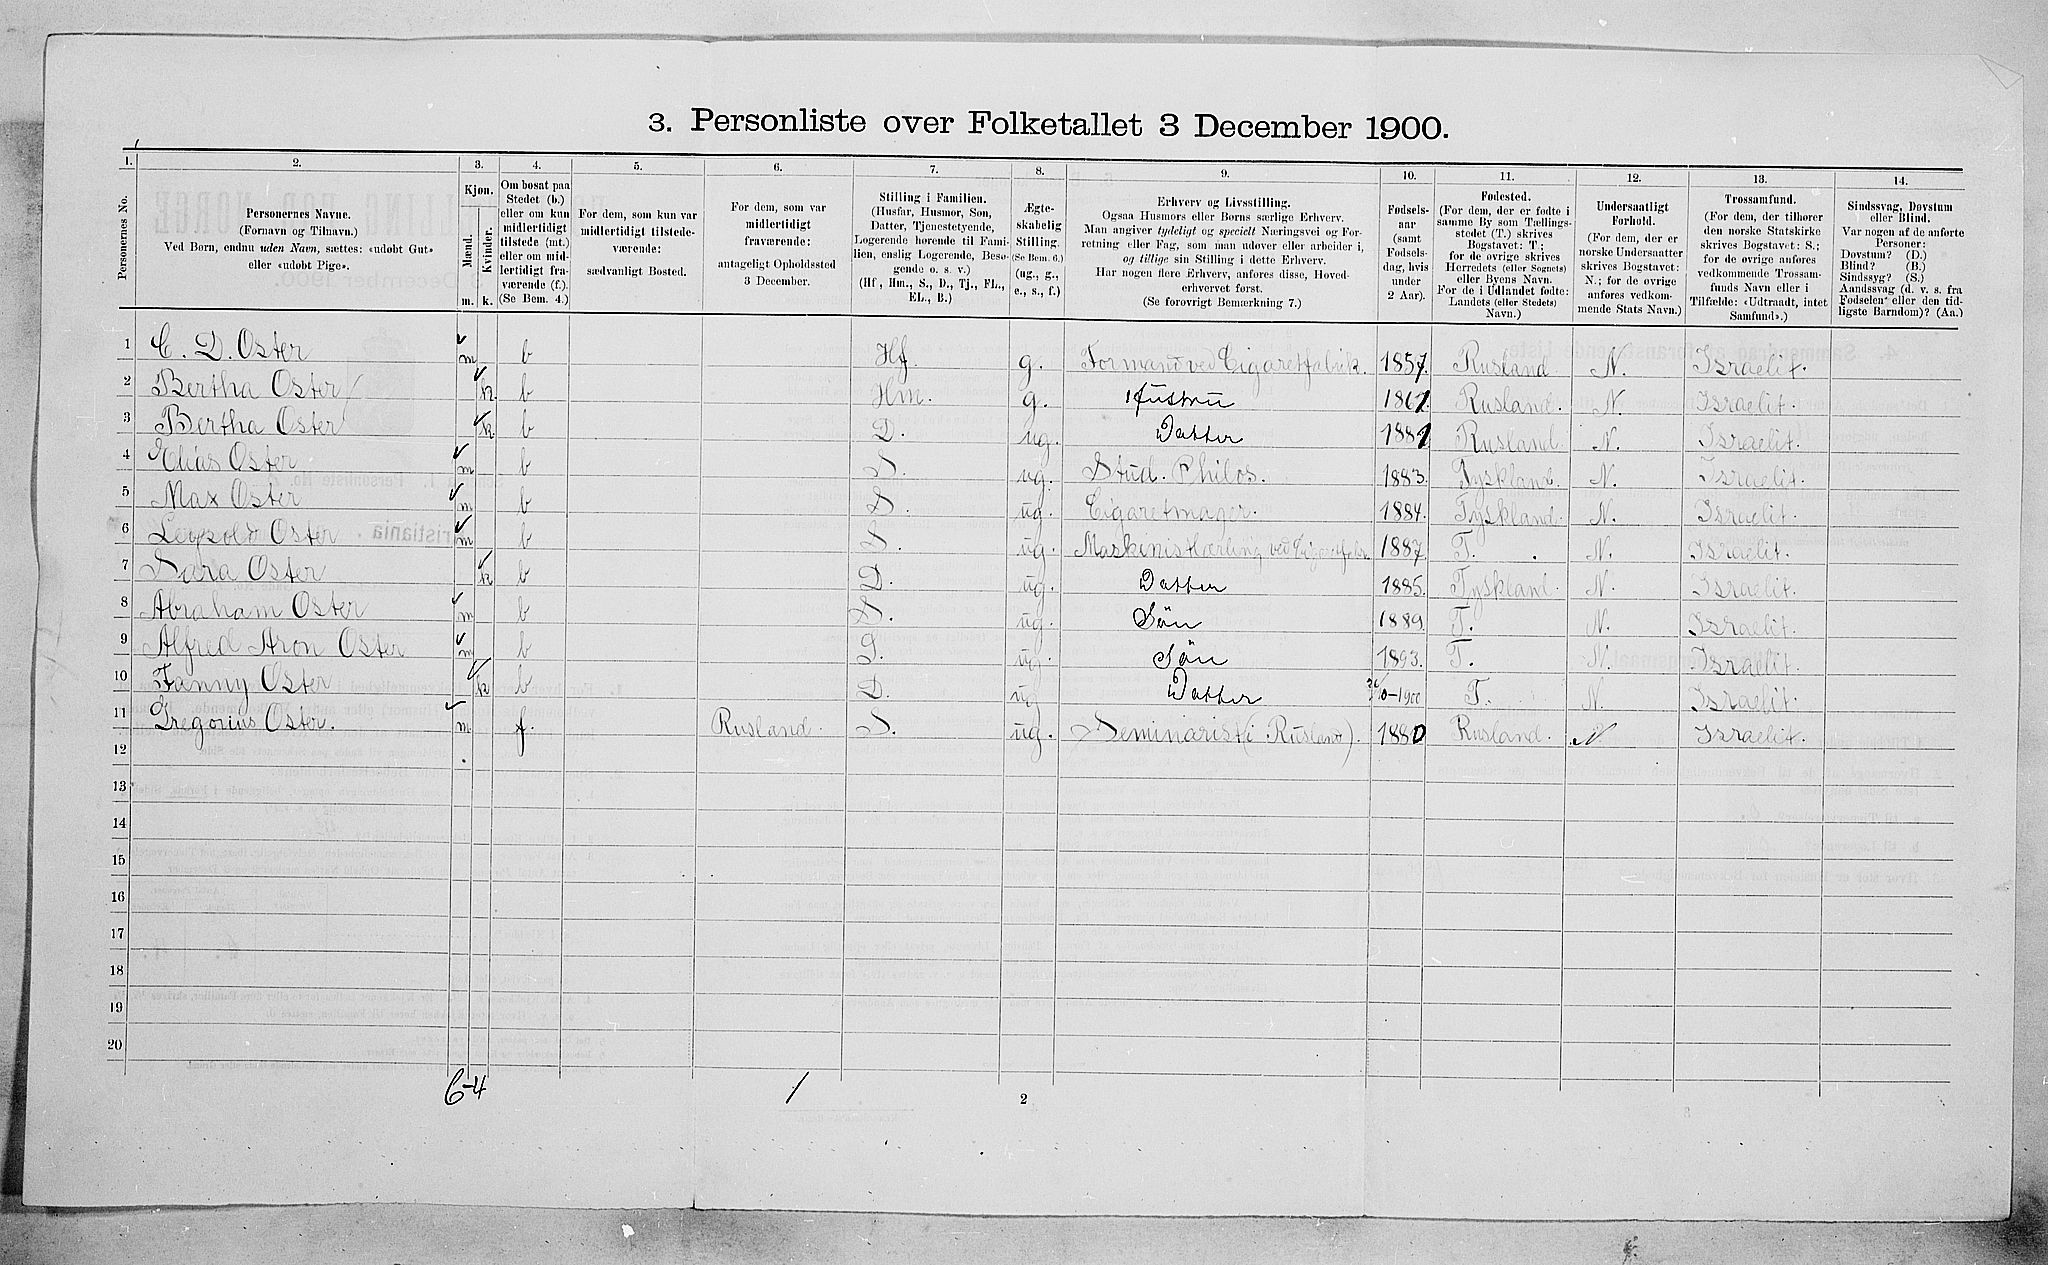 3. Personliste over Folketallet 3 December 1900.
1. 2. 3. 4. 5. 6. 7. 8. 9. 10. 11. 12. 13. 14.
Personernes No.
Personernes Navne.
(Fornavn og Tilnavn.)
Ved Børn, endnu uden Navn, sættes: «udøbt Gut»
eller «udøbt Pige».
Kjøn.
Mænd.
Kvinder.
m. k.
Om bosat paa
Stedet (b.)
eller om kun
midlertidigt
tilstede (mt.)
eller om mid-
lertidigt fra-
værende (f.).
(Se Bem. 4.)
For dem, som kun var
midlertidigt tilstede-
værende:
sædvanligt Bosted.
For dem, som var
midlertidigt
fraværende:
antageligt Opholdssted
3 December.
Stilling i Familien.
(Husfar, Husmor, Søn,
Datter, Tjenestetyende,
Logerende hørende til Fami-
lien, enslig Logerende, Besø-
gende o. s. v.)
(Hf, Hm., S., D., Tj., FL.,
EL., B.)
Ægte-
skabelig
Stilling.
(Se Bem. 6.)
(ug., g.,
e., s., f.)
Erhverv og Livsstilling.
Ogsaa Husmors eller Børns særlige Erhverv.
Man angiver tydeligt og specielt Næringsvei og For-
retning eller Fag, som man udøver eller arbeider i,
og tillige sin Stilling i dette Erhverv.
Har nogen flere Erhverv, anføres disse, Hoved-
erhvervet først.
(Se forøvrigt Bemærkning 7.)
Fødsels-
aar
(samt
Fødsels-
dag, hvis
under
2 Aar).
Fødested.
(For dem, der er fødte i
samme By som Tællings-
stedet (T.) skrives
Bogstavet: T;
for de øvrige skrives
Herredets (eller Sognets)
eller Byens Navn.
For de i Udlandet fødte:
Landets (eller Stedets)
Navn.)
Undersaatligt
Forhold.
(For dem, der er
norske Undersaatter
skrives Bogstavet:
N.; for de øvrige
anføres vedkom-
mende Stats Navn.)
Trossamfund.
(For dem, der tilhører
den norske Statskirke
skrives Bogstavet: S.;
for de øvrige anføres
vedkommende Trossam-
funds Navn eller i
Tilfælde: «Udtraadt, intet
Samfund».)
Sindssvag, Døvstum
eller Blind.
Var nogen af de anførte
Personer:
Døvstum? (D.)
Blind? (B.)
Sindssyg? (S.)
Aandssvag (d. v. s. fra
Fødselen eller den tid-
ligste Barndom)? (Aa.)
1 C. D. Oster m b Hf. g. Formand ved Cigaretfabrik. 1857. Rusland N. Israelit.
2 Bertha Oster k. b Hm. g. Hustru 1861. Rusland. N. Israelit.
3 Bertha Oster k b D. ug. Datter 1881 Rusland. N. Israelit.
4 Elias Oster m b S. ug. Stud. Philos. 1883. Tyskland. N. Israelit.
5 Max Oster m b S. ug. Cigaretmager. 1884. Tyskland. N. Israelit.
6 Leopold Oster m b S. ug. Maskinistlærling ved Cigaretfabr. 1887. T. N. Israelit.
7 Sara Oster k b D. ug. Datter 1885. Tyskland. N. Israelit.
8 Abraham Oster m b S. ug. Søn 1889. T. N. Israelit.
9 Alfred Aron Oster m b S. ug. Søn 1893. T. N. Israelit.
10 Fanny Oster k b D. ug Datter -1900 T. N. Israelit.
11 Gregorius Oster. m f. Rusland. S. ug. Seminarist (i Rusland). 1880 Rusland. N Israelit.
12
13
14
15
16
17
18
19
20
6-4 1
2